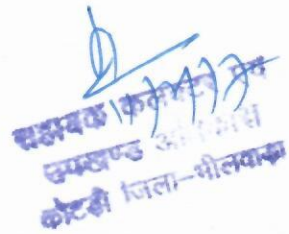 सहायक कलक्टर एवं
उपखण्ड अधिकारी
कोटडी जिला-भीलवाडा